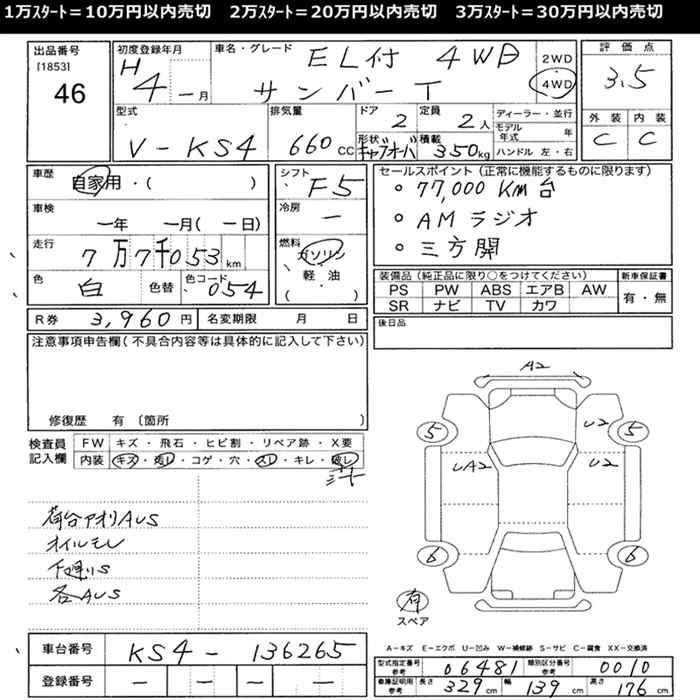 1万ｽﾀｰﾄ＝10万円以内売切　2万ｽﾀｰﾄ＝20万円以内売切　3万ｽﾀｰﾄ＝30万円以内売切
出品番号
[1853]
46
初度登録年月
H4 ー月
車名・グレード
EL付 4WD
サンバーT
2WD
4WD
評価点
3.5
外装 内装
C C
型式
V-KS4
排気量
660 CC
ドア
2
定員
2人
形状
キャブオーバ
積載
350kg
ディーラー・並行
モデル年式 年
ハンドル 左・右
車歴
自家用・( )
車検
ー年 ー月(ー日)
走行
7万7千053 km
色
白
色替
色コード
054
シフト
F5
冷房
ー
燃料
ガソリン
軽・油
( )
セールスポイント(正常に機能するものに限ります)
○ 77,000 Km台
○ AMラジオ
○ 三方開
装備品(純正品に限り○をつけてください)
PS PW ABS エアB AW
SR ナビ TV カワ
新車保証書
有・無
R券 3,960円
名変期限 月 日
後日品
注意事項申告欄(不具合内容等は具体的に記入して下さい)
修復歴 有 〔箇所 〕
検査員記入欄
FW キズ・飛石・ヒビ割・リペア跡・X要
内装 キズ・汚レ・コゲ・穴・スレ・キレ・破レ
荷台アオリAUS
オイルモレ
下廻りS
各AUS
A2
5 U2 5
UA2 U2
6 6
有
スペア
A－キズ E－エクボ U－凹み W－補修跡 S－サビ C－腐食 XX－交換済
車台番号
KS4-136265
登録番号
ー ー ー ー
型式指定番号 参考 06481
類別区分番号 参考 0010
車庫証明用 参考 長さ 329cm 幅 139cm 高さ 176cm